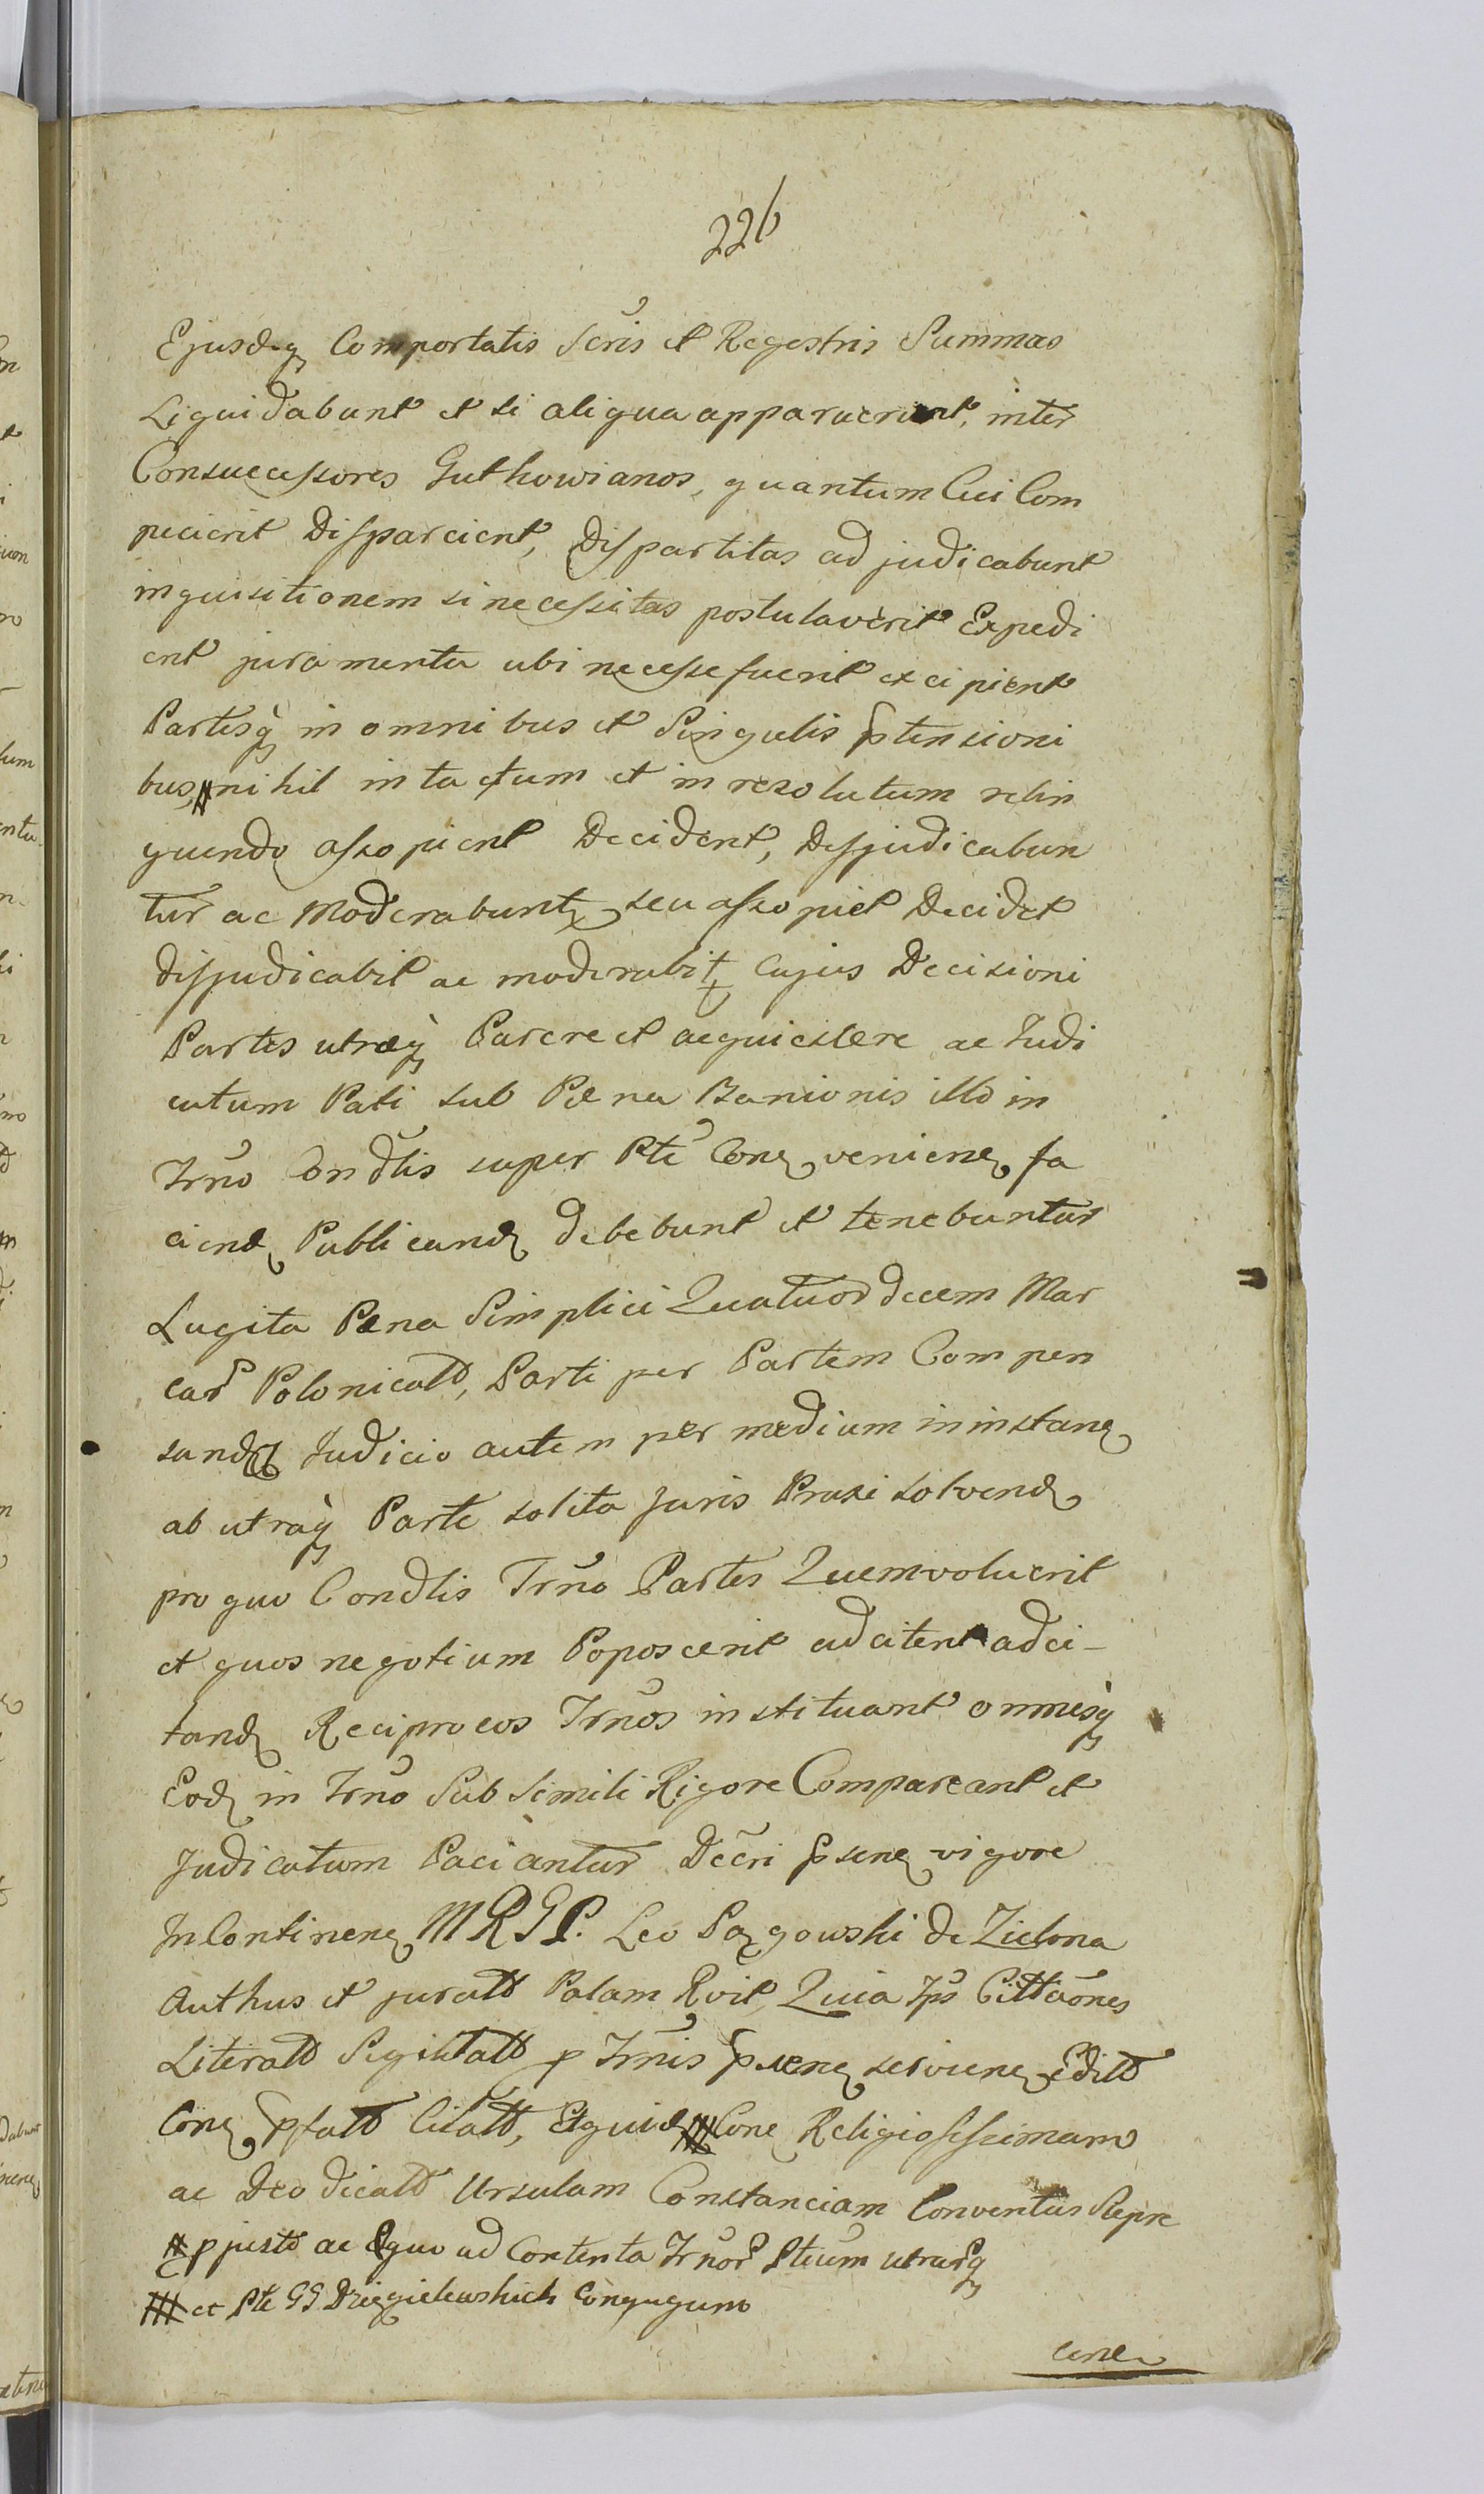 226
Ejusdq Comportatis Scris et Regestris Summas
Liquidabunt et si aliqua apparuerint, inter
Consuccessores Guthowianos, quantum Cui Com
pecierit Disparcient, Dispartitas adjudicabunt
inquisitionem si necessitas postulaverit Expedi
ent juramenta ubi necesse fuerit excipient
Partesq in omnibus et Singulis ptensioni
bus, # nihil intactum et inresolutum relin
quendo assopient Decident, Desjudicabun
tur ac Moderabunt seu assopiet Decidet
disjudicabit ac moderabit Cujus Decisioni
Partes utraeq Parere et acquiescere ac Judi
catum Pati sub Paena Banionis illo in
Trno Condlis super Pte Cone veniene fa
ciend Publicand debebunt et tenebuntur
Lugita Paena Simplici Quatuordecem Mar
car Polonicalt, Parti per Partem Compen
sand Judicio autem per medium ininstane
ab utraq Parte solita Juris Praxi solvend
pro quo Condlis Trno Partes Quem voluerit
et quos negotium Poposcerit adcitent adci-
tand Reciprocos Trnos instituant omnesq
Eod in Trno Sub simili Rigore Compareant et
Judicatum Paciantur Decri psene vigore
InContinene MRGP. Leo Pazgowski de Zielona
Authus et juratt Palam Rvit, Quia Ips Cittaones
Literatt Sigillatt p Trnis psene serviene editt
Cone pfatt Citatt, Et quid ### Cone Religiosissimam
ac Deo dicatt Ursulam Constanciam Conventus Sierpc
# p justo ac Equo ad Contenta Trnor Ptium utrarq
### et Pte GG Dziegielewskich Conjugum
cense